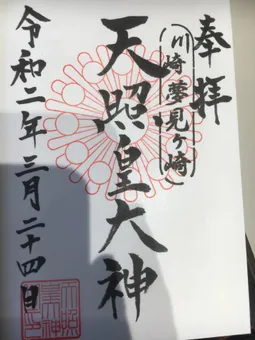 奉拝
(川崎夢見ヶ崎)
天照皇大神
令和二年三月二十四日